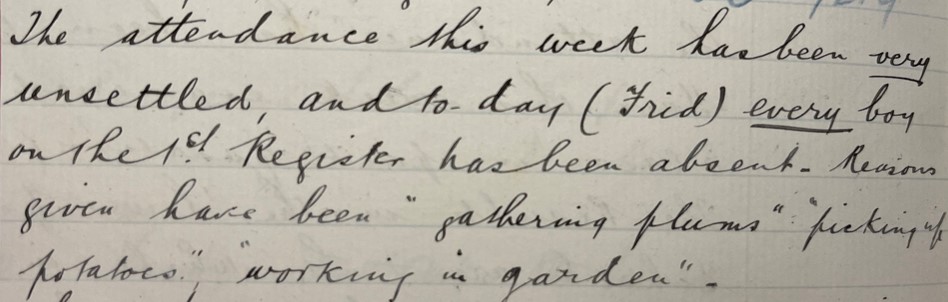 The attendance this week has been very
unsettled, and to-day (Frid) every boy
on the 1st Register has been absent. Reasons
given have been "gathering plums" "picking up
potatoes", "working in garden".